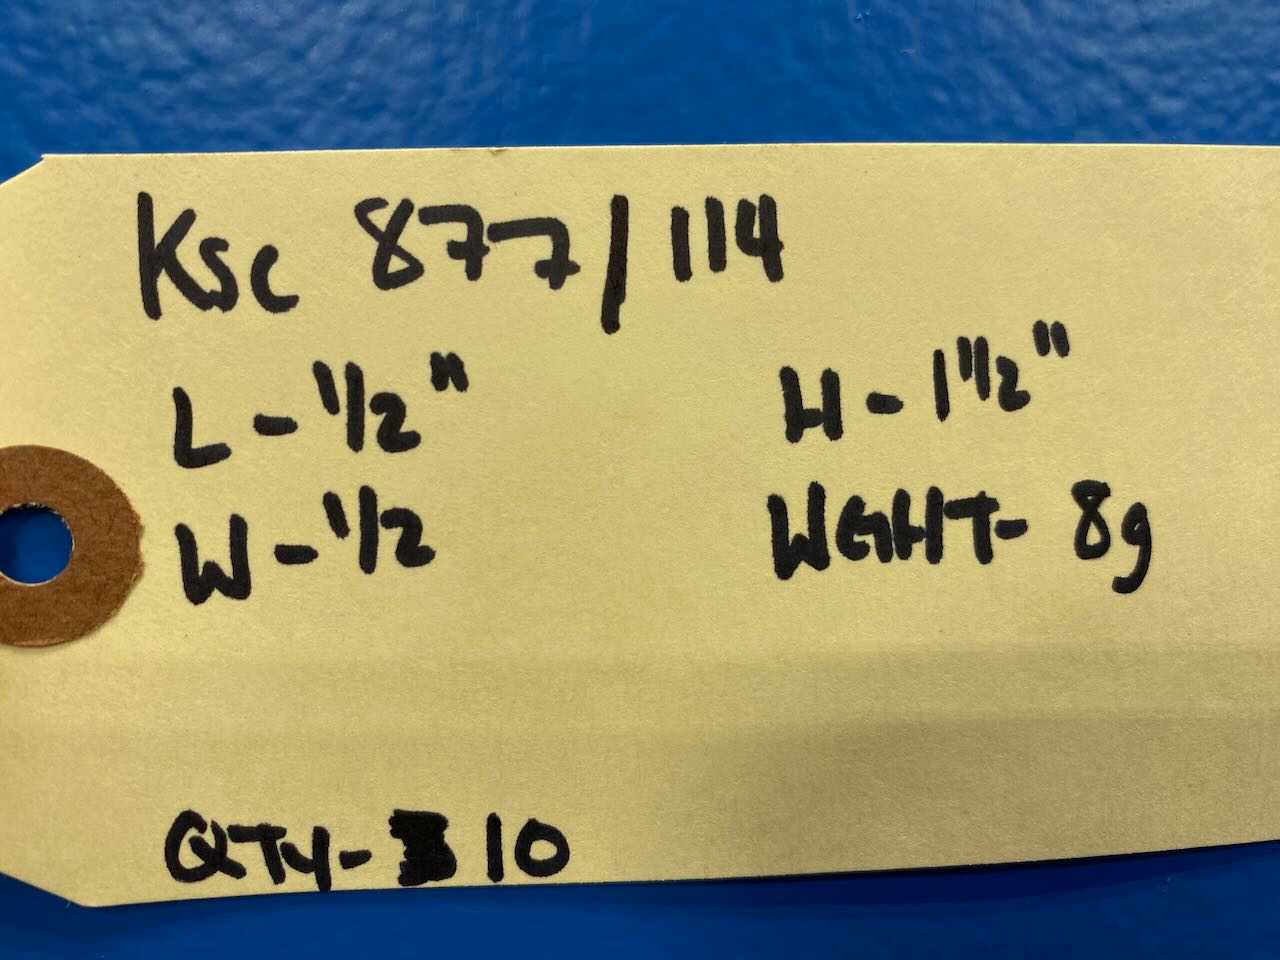 Ksc 877/114
L - 1/2" H - 1 1/2"
W - 1/2 WGHT - 8g
QTy - 10